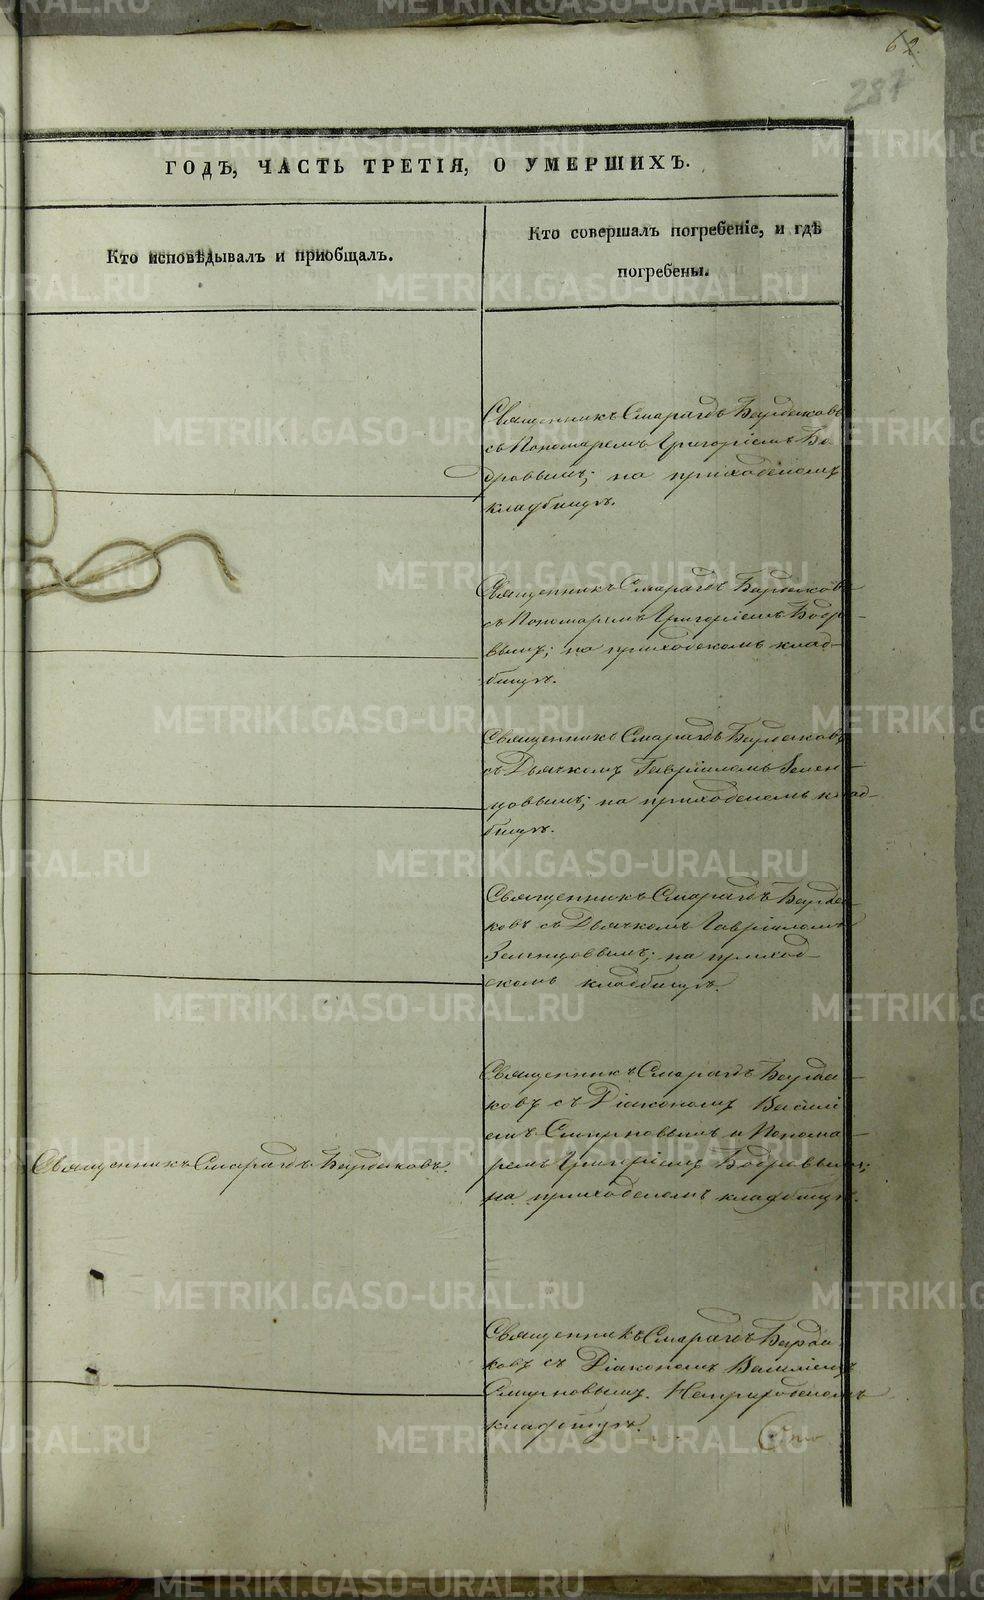 62.
287
ГОДЪ, ЧАСТЬ ТРЕТІЯ, О УМЕРШИХЪ.
Кто исповѣдывалъ и пріобщалъ.
Кто совершалъ погребеніе, и гдѣ
погребены.
Священникъ Смарагдъ Бардаковъ
съ Пономаремъ Григоріемъ Бо-
дровымъ; на приходскомъ
кладбищѣ.
Священникъ Смарагдъ Бардаковъ
съ Пономаремъ Григоріемъ Бодро-
вымъ; на приходскомъ клад-
бищѣ.
Священникъ Смарагдъ Бардаковъ
съ Дьячкомъ Гавріиломъ Зелен-
цовымъ; на приходскомъ клад-
бищѣ.
Священникъ Смарагдъ Барда-
ковъ съ Дьячкомъ Гавріиломъ
Зеленцовымъ; на приход-
скомъ кладбищѣ.
Священникъ Смарагдъ Бардаковъ.
Священникъ Смарагдъ Барда-
ковъ съ Діакономъ Василі
емъ Смирновымъ и Понома-
ремъ Григоріемъ Бодровымъ;
на приходскомъ кладбищѣ.
Священникъ Смарагдъ Барда-
ковъ съ Діакономъ Василіемъ
Смирновымъ. На приходскомъ
кладбищѣ.
METRIKI.GASO-URAL.RU